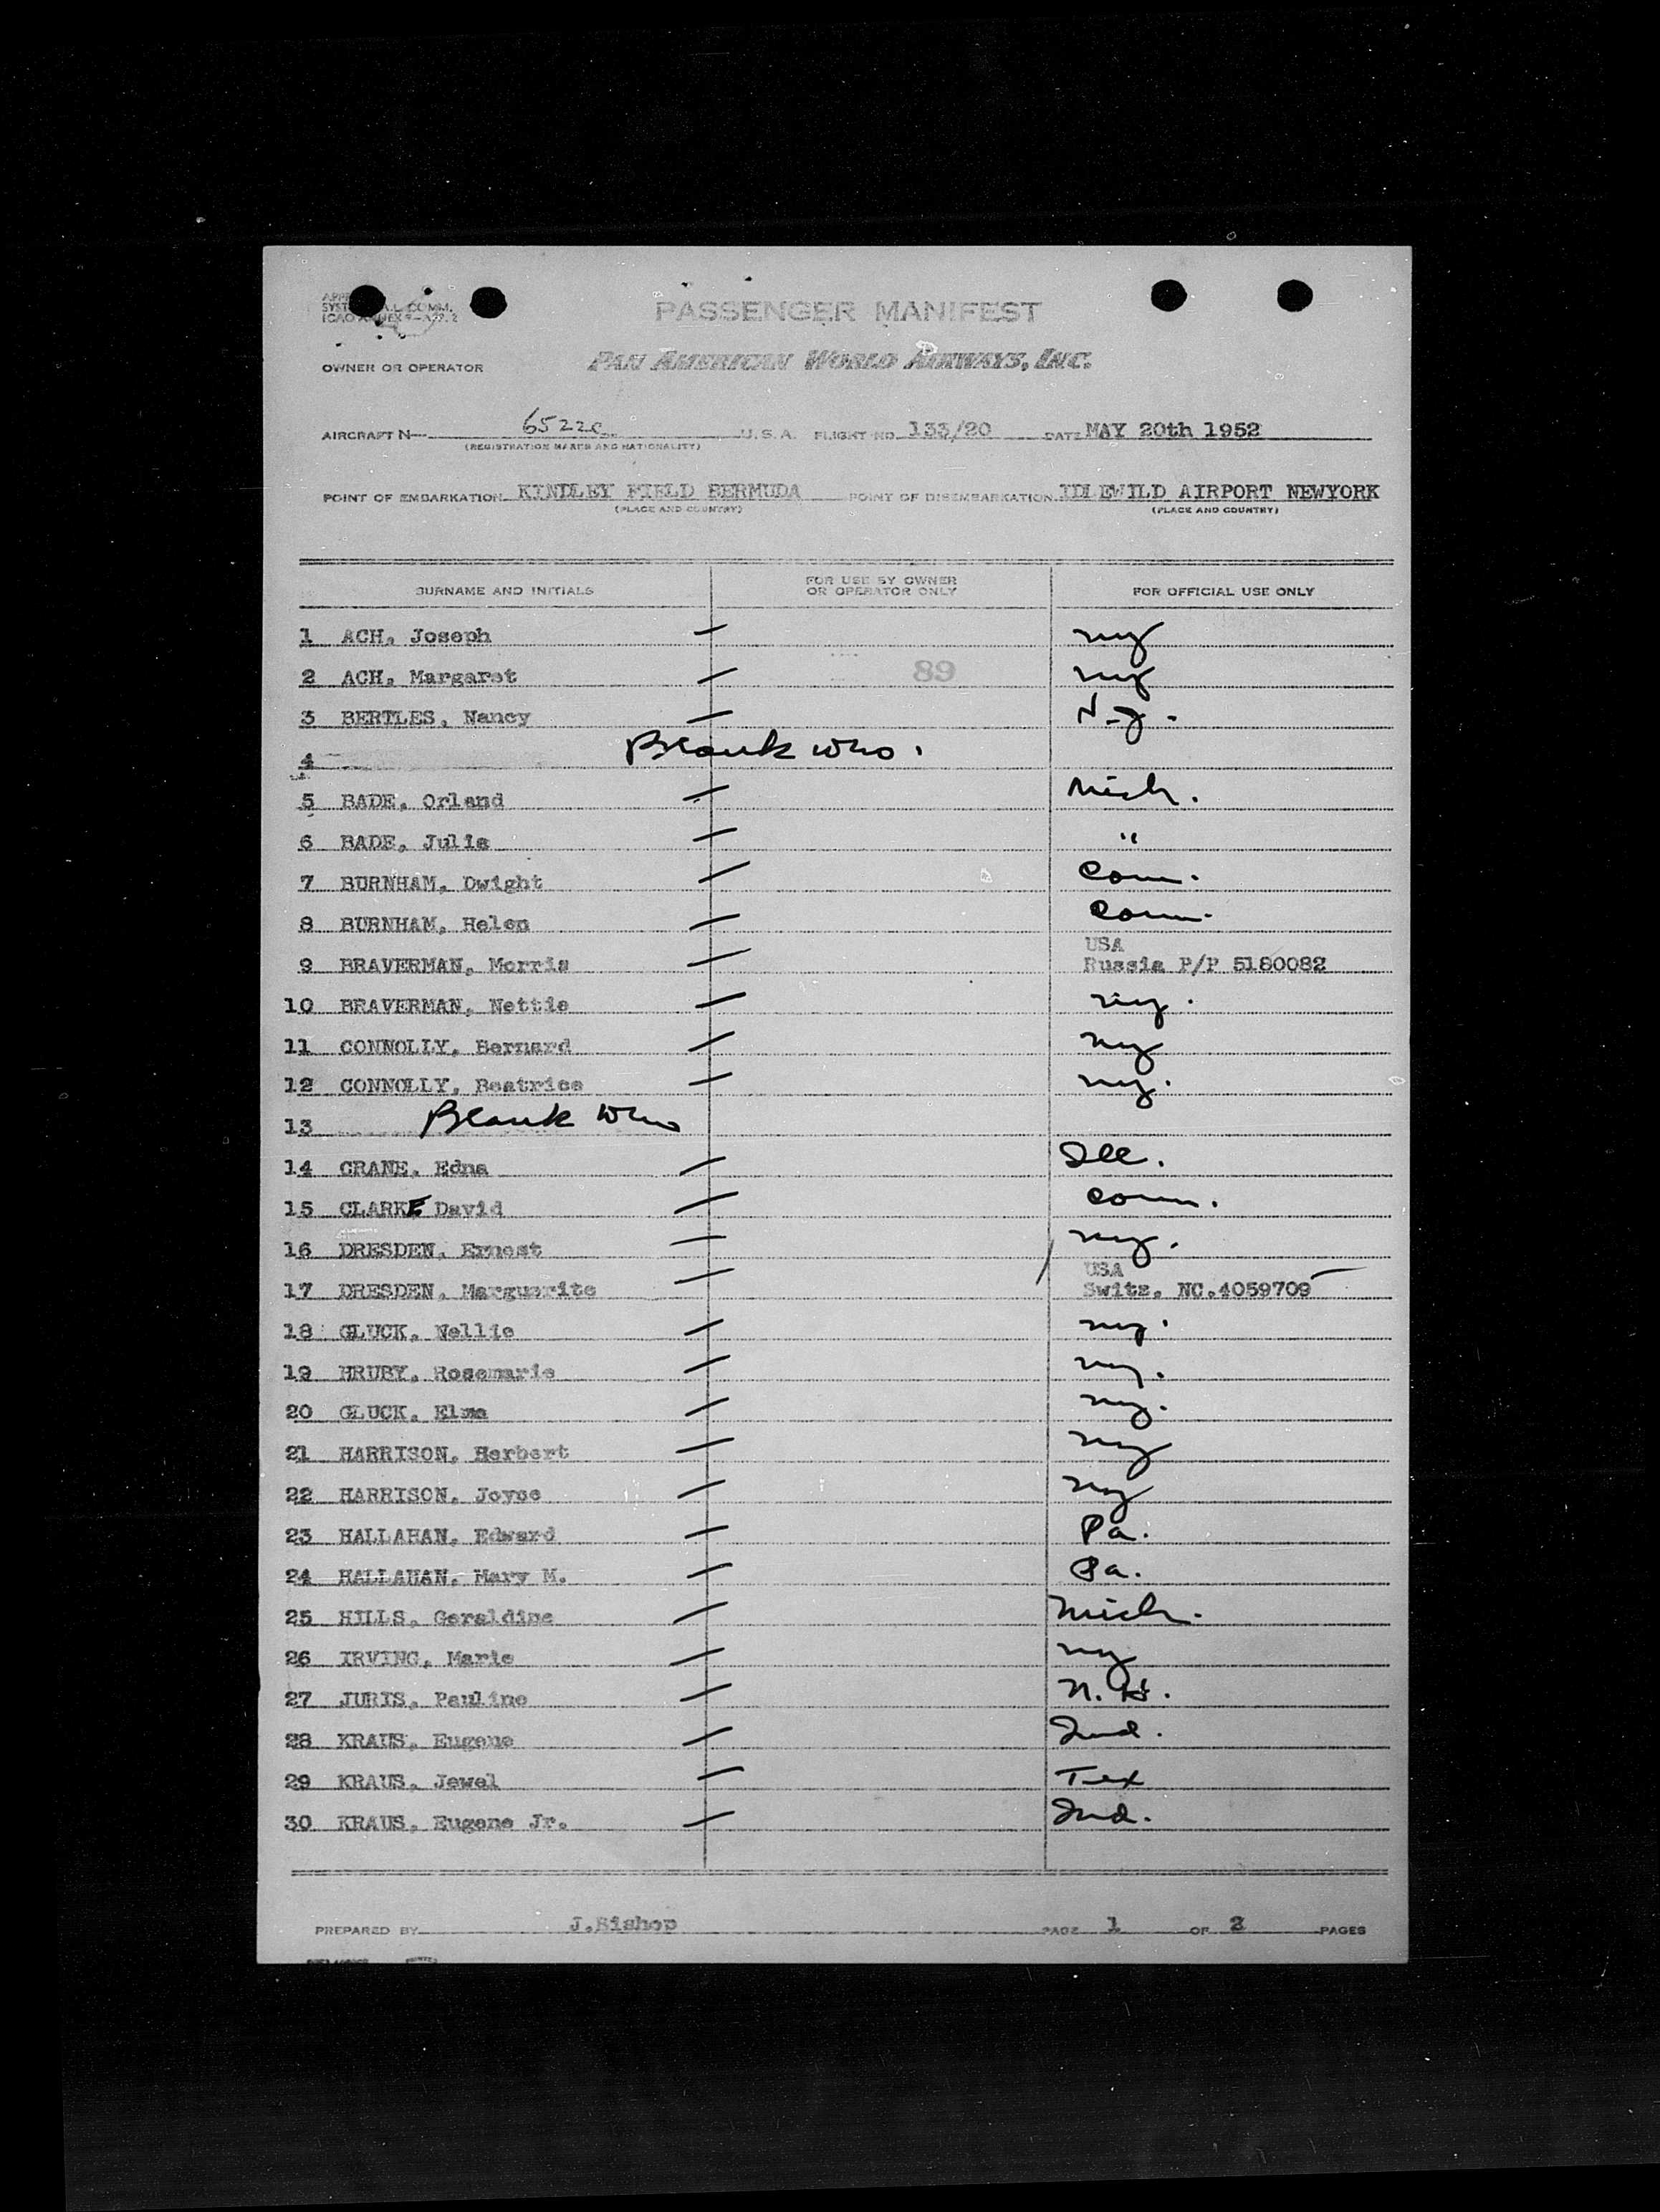 PASSENGER MANIFEST
ICAO ANNEX 9-APP. 2
OWNER OR OPERATOR PAN AMERICAN WORLD AIRWAYS, INC.
AIRCRAFT N— U.S.A. FLIGHT NO. 133/20 DATE MAY 20th 1952
(REGISTRATION MARKS AND NATIONALITY)
POINT OF EMBARKATION KINDLEY FIELD BERMUDA POINT OF DISEMBARKATION IDLEWILD AIRPORT NEWYORK
(PLACE AND COUNTRY) (PLACE AND COUNTRY)
SURNAME AND INITIALS FOR USE BY OWNER OR OPERATOR ONLY FOR OFFICIAL USE ONLY
1 ACH, Joseph — ny
2 ACH, Margaret — 89 ny
3 BERTLES, Nancy — N.J.
4 Blank
5 BADE, Orland — Mich.
6 BADE, Julia — "
7 BURNHAM, Dwight — Conn.
8 BURNHAM, Helen — Conn.
USA
9 BRAVERMAN, Morris — Russia P/P 5180082
10 BRAVERMAN, Nettie — ny.
11 CONNOLLY, Bernard — ny
12 CONNOLLY, Beatrice — ny.
13 Blank
14 CRANE, Edna — Ill.
15 CLARKE David — Conn.
16 DRESDEN, Ernest — ny.
USA
17 DRESDEN, Marguerite — Switz. NC.4059709
18 GLUCK, Nellie — ny.
19 HRUBY, Rosemarie — ny.
20 GLUCK, Elma — ny.
21 HARRISON, Herbert — ny
22 HARRISON, Joyce — ny
23 HALLAHAN, Edward — Pa.
24 HALLAHAN, Mary M. — Pa.
25 HILLS, Geraldine — Mich.
26 IRVING, Marie — ny
27 JURIS, Pauline — N.H.
28 KRAUS, Eugene — Ind.
29 KRAUS, Jewel — Tex
30 KRAUS, Eugene Jr. — Ind.
PREPARED BY J.Bishop PAGE 1 OF 2 PAGES